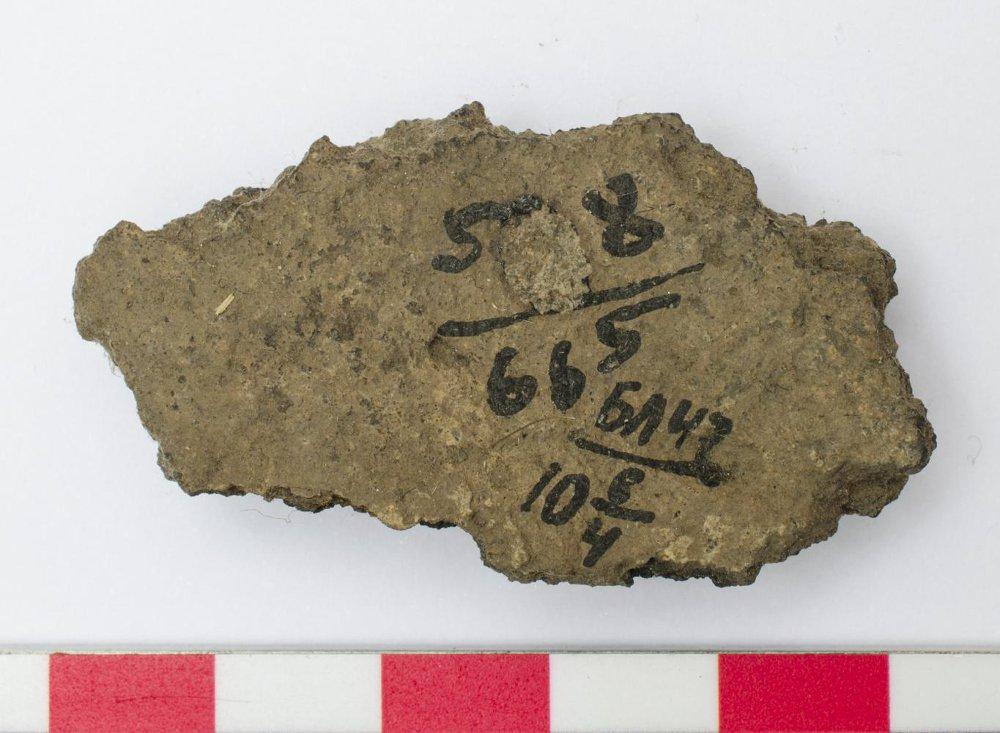 58
665
БЛ 47
10 8/4